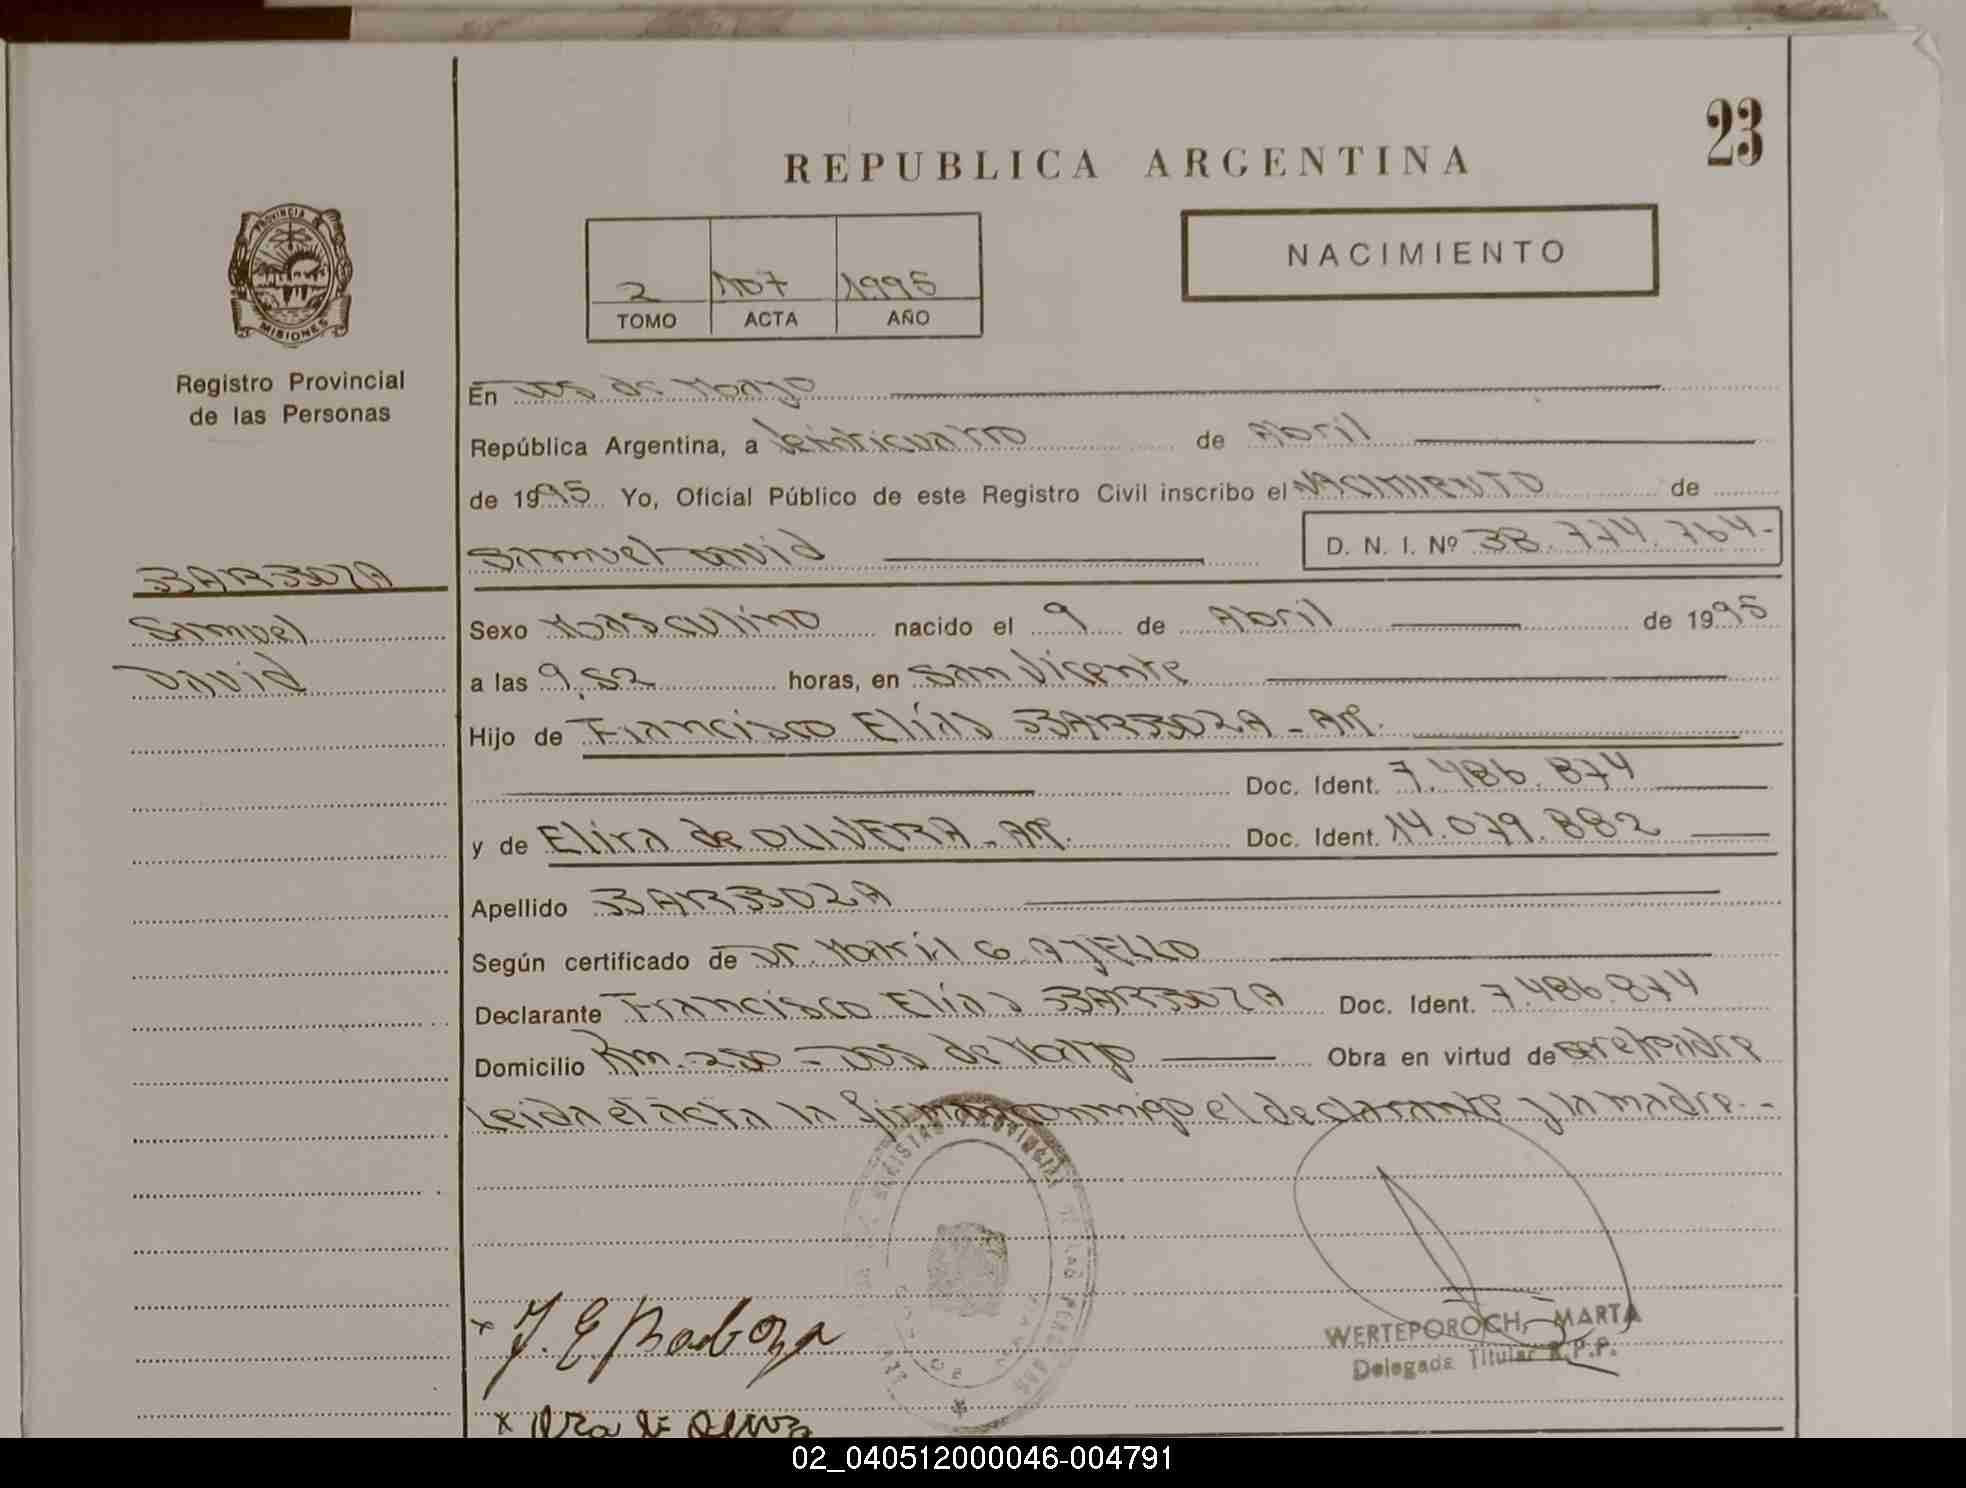 23
REPUBLICA ARGENTINA
NACIMIENTO
2 107 1995
TOMO ACTA AÑO
PROVINCIA DE
MISIONES
Registro Provincial
de las Personas
BARBOZA
Samuel
David
En Dos de Mayo
República Argentina, a Veinticuatro de Abril
de 1995 Yo, Oficial Público de este Registro Civil inscribo el NACIMIENTO de
Samuel David D. N. I. Nº 38.774.764-
Sexo Masculino nacido el 9 de Abril de 1995
a las 9,52 horas, en San Vicente
Hijo de Francisco Elías BARBOZA - Arg.
Doc. Ident. 7.486.874
y de Elira de OLIVERA - Arg. Doc. Ident. 14.079.882
Apellido BARBOZA
Según certificado de Dr. G. AJELLO
Declarante Francisco Elías BARBOZA Doc. Ident. 7.486.874
Domicilio Km. 250 - Dos de Mayo Obra en virtud de ser el padre
Leida el acta la firman conmigo el declarante y la madre.-
REGISTRO PROVINCIAL DE LAS PERSONAS
x F. E Barboza
WERTEPOROCH, MARTA
Delegada Titular R.P.P.
02_040512000046-004791